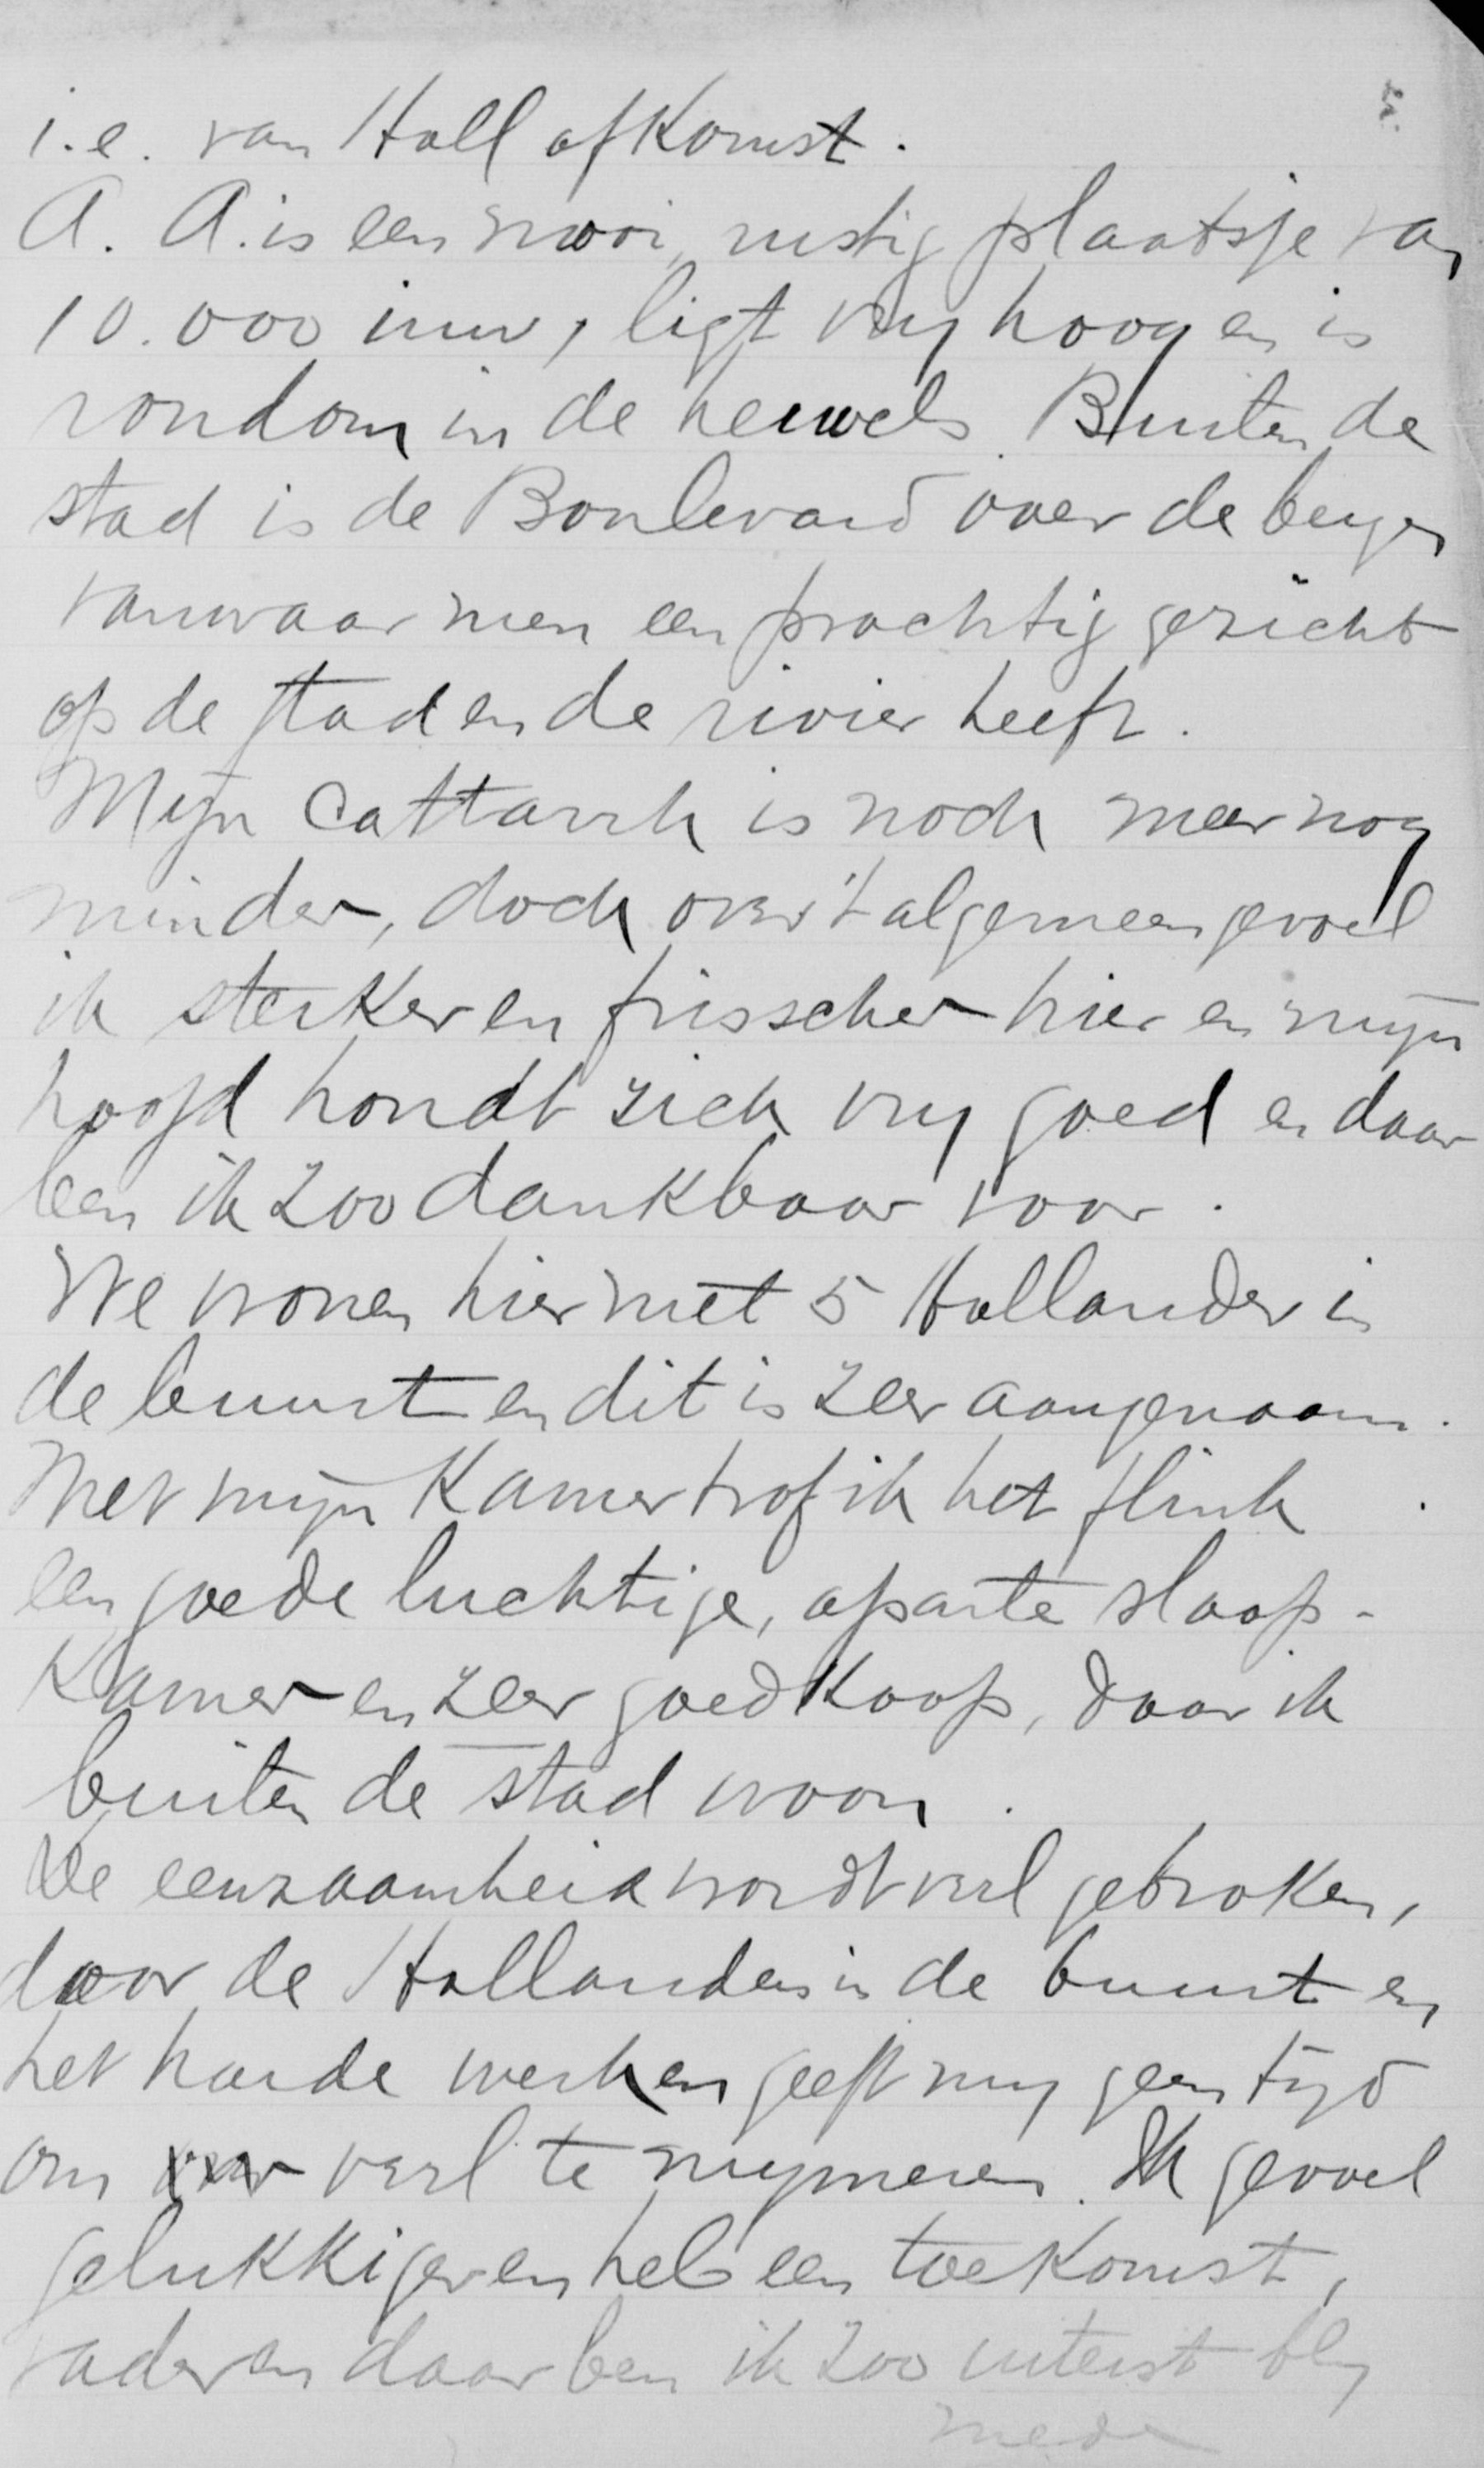 i.e. van Holl afkomst.
A. A. is een mooi, rustig plaatsje van
10.000 inw, ligt vrij hoog en is
rondom in de heuvels. Buiten de
stad is de Boulevard over de bergen
vanwaar men een prachtig gezicht
op de stad en de rivier heeft.
Mijn Cattarrh is noch meer nog
minder, doch over 't algemeen gevoel
ik sterker en frisscher hier en mijn
hoofd houdt zich vrij goed en daar
ben ik zoo dankbaar voor.
We wonen hier met 5 Hollander in
de buurt en dit is zeer aangenaam.
Met mijn Kamer trof ik het flink
een goede luchtige, aparte slaap-
Kamer en zeer goedkoop, daar ik
buiten de stad woon.
De eenzaamheid wordt veel gebroken,
door de Hollanders in de buurt en
het harde werken geeft mij geen tijd
om veel te mijmeren. Ik gevoel
gelukkiger en heb een toekomst,
vader en daar ben ik zoo uiterst blij
mede